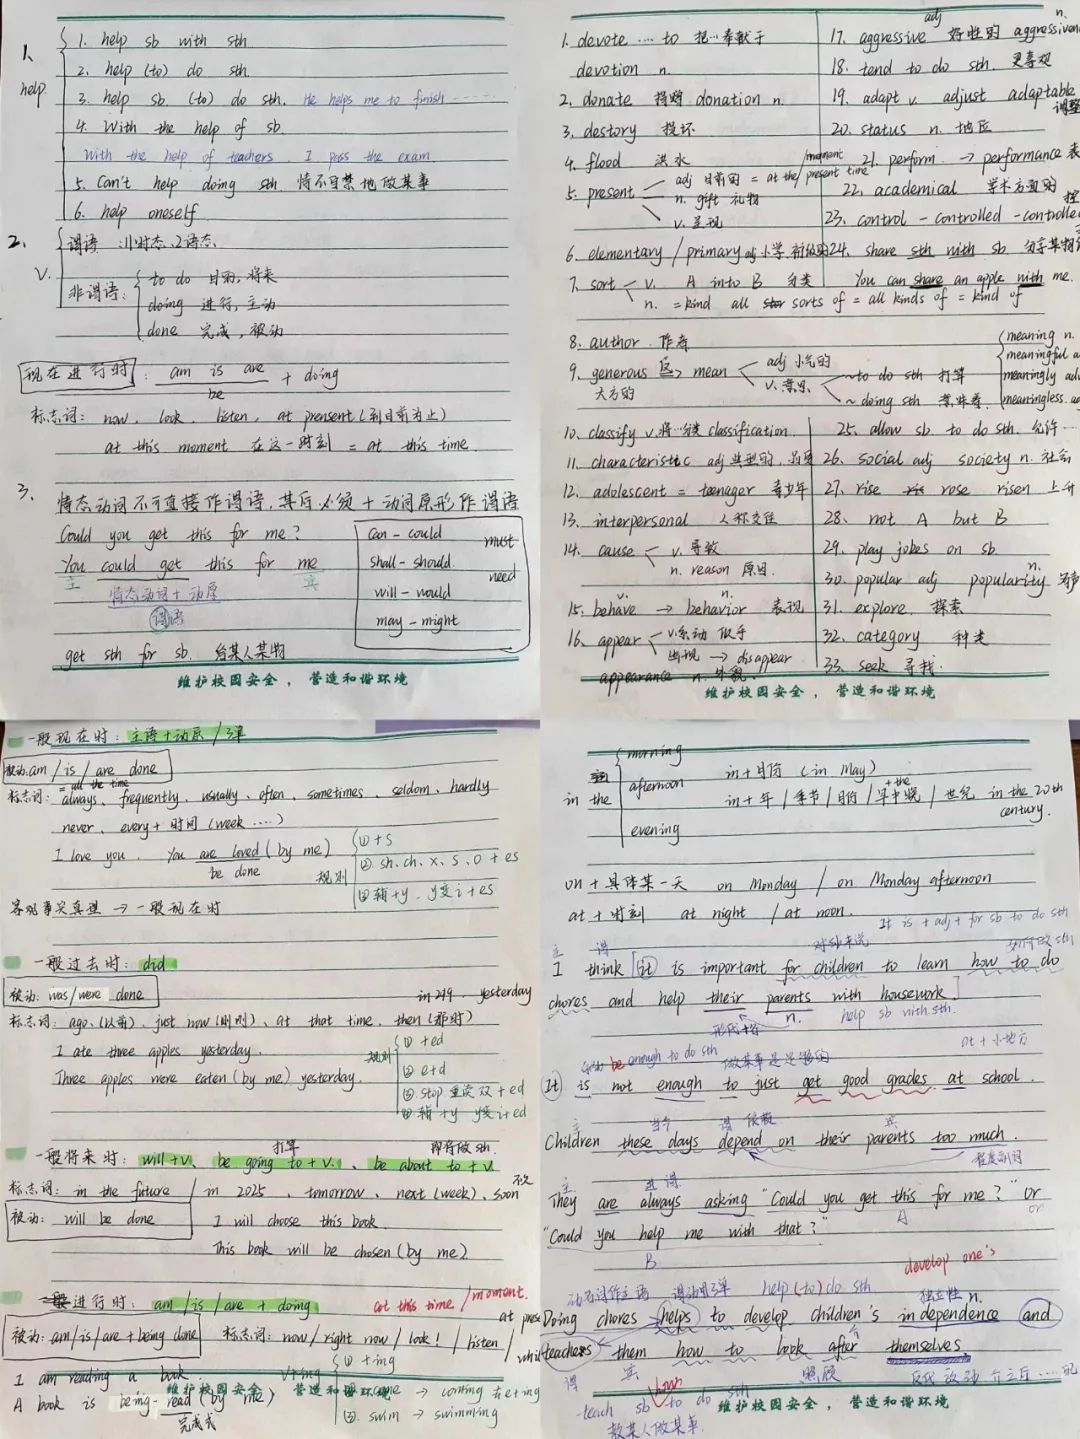 1、
help
1. help sb with sth
2. help (to) do sth.
3. help sb. (to) do sth. He helps me to finish ······
4. With the help of sb.
With the help of teachers. I pass the exam.
5. Can't help doing sth 情不自禁地做某事
6. help oneself
2、
V.
谓语: 1)时态、2)语态
非谓语:
to do 目的, 将来
doing 进行, 主动
done 完成, 被动
现在进行时: am is are + doing
be
标志词: now, look, listen, at prensent (到目前为止)
at this moment 在这一时刻 = at this time.
3、
情态动词不可直接作谓语, 其后必须 + 动词原形作谓语
Could you get this for me?
You could get this for me
主 宾
情态动词 + 动原
谓语
can - could
shall - should
will - would
may - might
must
need
get sth for sb. 给某人某物
维护校园安全 , 营造和谐环境
1. devote ··· to 把···奉献于
devotion n.
2. donate 捐赠 donation n.
3. destory 毁坏
4. flood 洪水
5. present
adj 目前的 = at the / present time
moment
n. gift 礼物
v. 呈现
6. elementary / primary adj 小学, 初级的
7. sort
v. A into B 分类
n. = kind all sorts of = all kinds of = kind of
8. author 作者
9. generous 区> mean
大方的
adj 小气的
v. 意思
~ to do sth 打算
~ doing sth 意味着
meaning n.
meaningful a
meaningly adv
meaningless. ad
10. classify v. 将···分类 classification.
11. characteristic adj 典型的, 品质
12. adolescent = teenager 青少年
13. interpersonal 人际交往
14. cause
v. 导致
n. reason 原因.
15. behave → behavior 表现
v. n.
16. appear
v. 系动 似乎
出现 → disappear
appearance n. 外貌
17. aggressive 好胜的 aggressiven
adj n.
18. tend to do sth. 更喜欢
19. adapt v. adjust adaptable
调整
20. status n. 地位
21. perform. → performance 表
22. academical 学术方面的
23. control - controlled - controlle
控
24. share sth with sb 分享某物
You can share an apple with me.
25. allow sb. to do sth. 允许···
26. social adj society n. 社会
27. rise rose risen 上升
28. not A but B
29. play jobes on sb.
30. popular adj popularity
n.
31. explore. 探索
32. category 种类
33. seek 寻找.
维护校园安全 , 营造和谐环境
一般现在时: 主语 + 动原 / 3单
被动: am / is / are done
= all the time
标志词: always, frequently, usually, often, sometimes, seldom, hardly
never, every + 时间 (week ····)
I love you. You are loved (by me)
be done
规则
① + s
② sh. ch. x. s. o + es
③ 辅 + y. y变i + es
客观事实真理 → 一般现在时
一般过去时: did
被动: was / were done
in 2019. yesterday
标志词: ago. (以前). just now (刚刚)、at that time. then (那时)
I ate three apples yesterday.
Three apples were eaten (by me) yesterday.
规则
① + ed
② e + d
③ stop 重读双 + ed
④ 辅 + y y变i + ed
打算 即将做 sth.
一般将来时: will + v、be going to + v.、be about to + v.
标志词: in the future / in 2025、tomorrow、next (week)、soon 不久
被动: will be done
I will choose this book.
This book will be chosen (by me)
进行时: am / is / are + doing
at this time / moment.
at prese
被动: am / is / are + being done
标志词: now / right now / look! / listen / whil
I am reading a book.
A book is being read (by me)
完成式
v + ing
① + ing
→ coming 去e + ing
③. swim → swimming
维护校园安全 营造和谐环境
in the
morning
afternoon
evening
in + 月份 (in May)
in + 年 / 季节 / 月份 / 早中晚 / 世纪 in the 20th
+ the
century.
on + 具体某一天 on Monday / on Monday afternoon
at + 时刻 at night / at noon.
It is + adj + for sb to do sth
主 谓 对sb来说 如何做sth
I think [it is important for children to learn how to do
chores and help their parents with housework.]
形代 + 名 n. help sb with sth.
be enough to do sth 做某事是足够的 at + 小地方
It is not enough to just get good grades at school.
主 当今 谓 依赖 宾
Children these days depend on their parents too much.
程度副词
主 进 谓
They are always asking “Could you get this for me?” or
A or
“Could you help me with that?”
B
develop one's
动名词作主语 谓动用3单 help (to) do sth 独立性 n.
Doing chores helps to develop children's independence and
teaches them how to look after themselves
谓 宾 照顾
teach sb how to do sth
教某人做某事.
维护校园安全 , 营造和谐环境